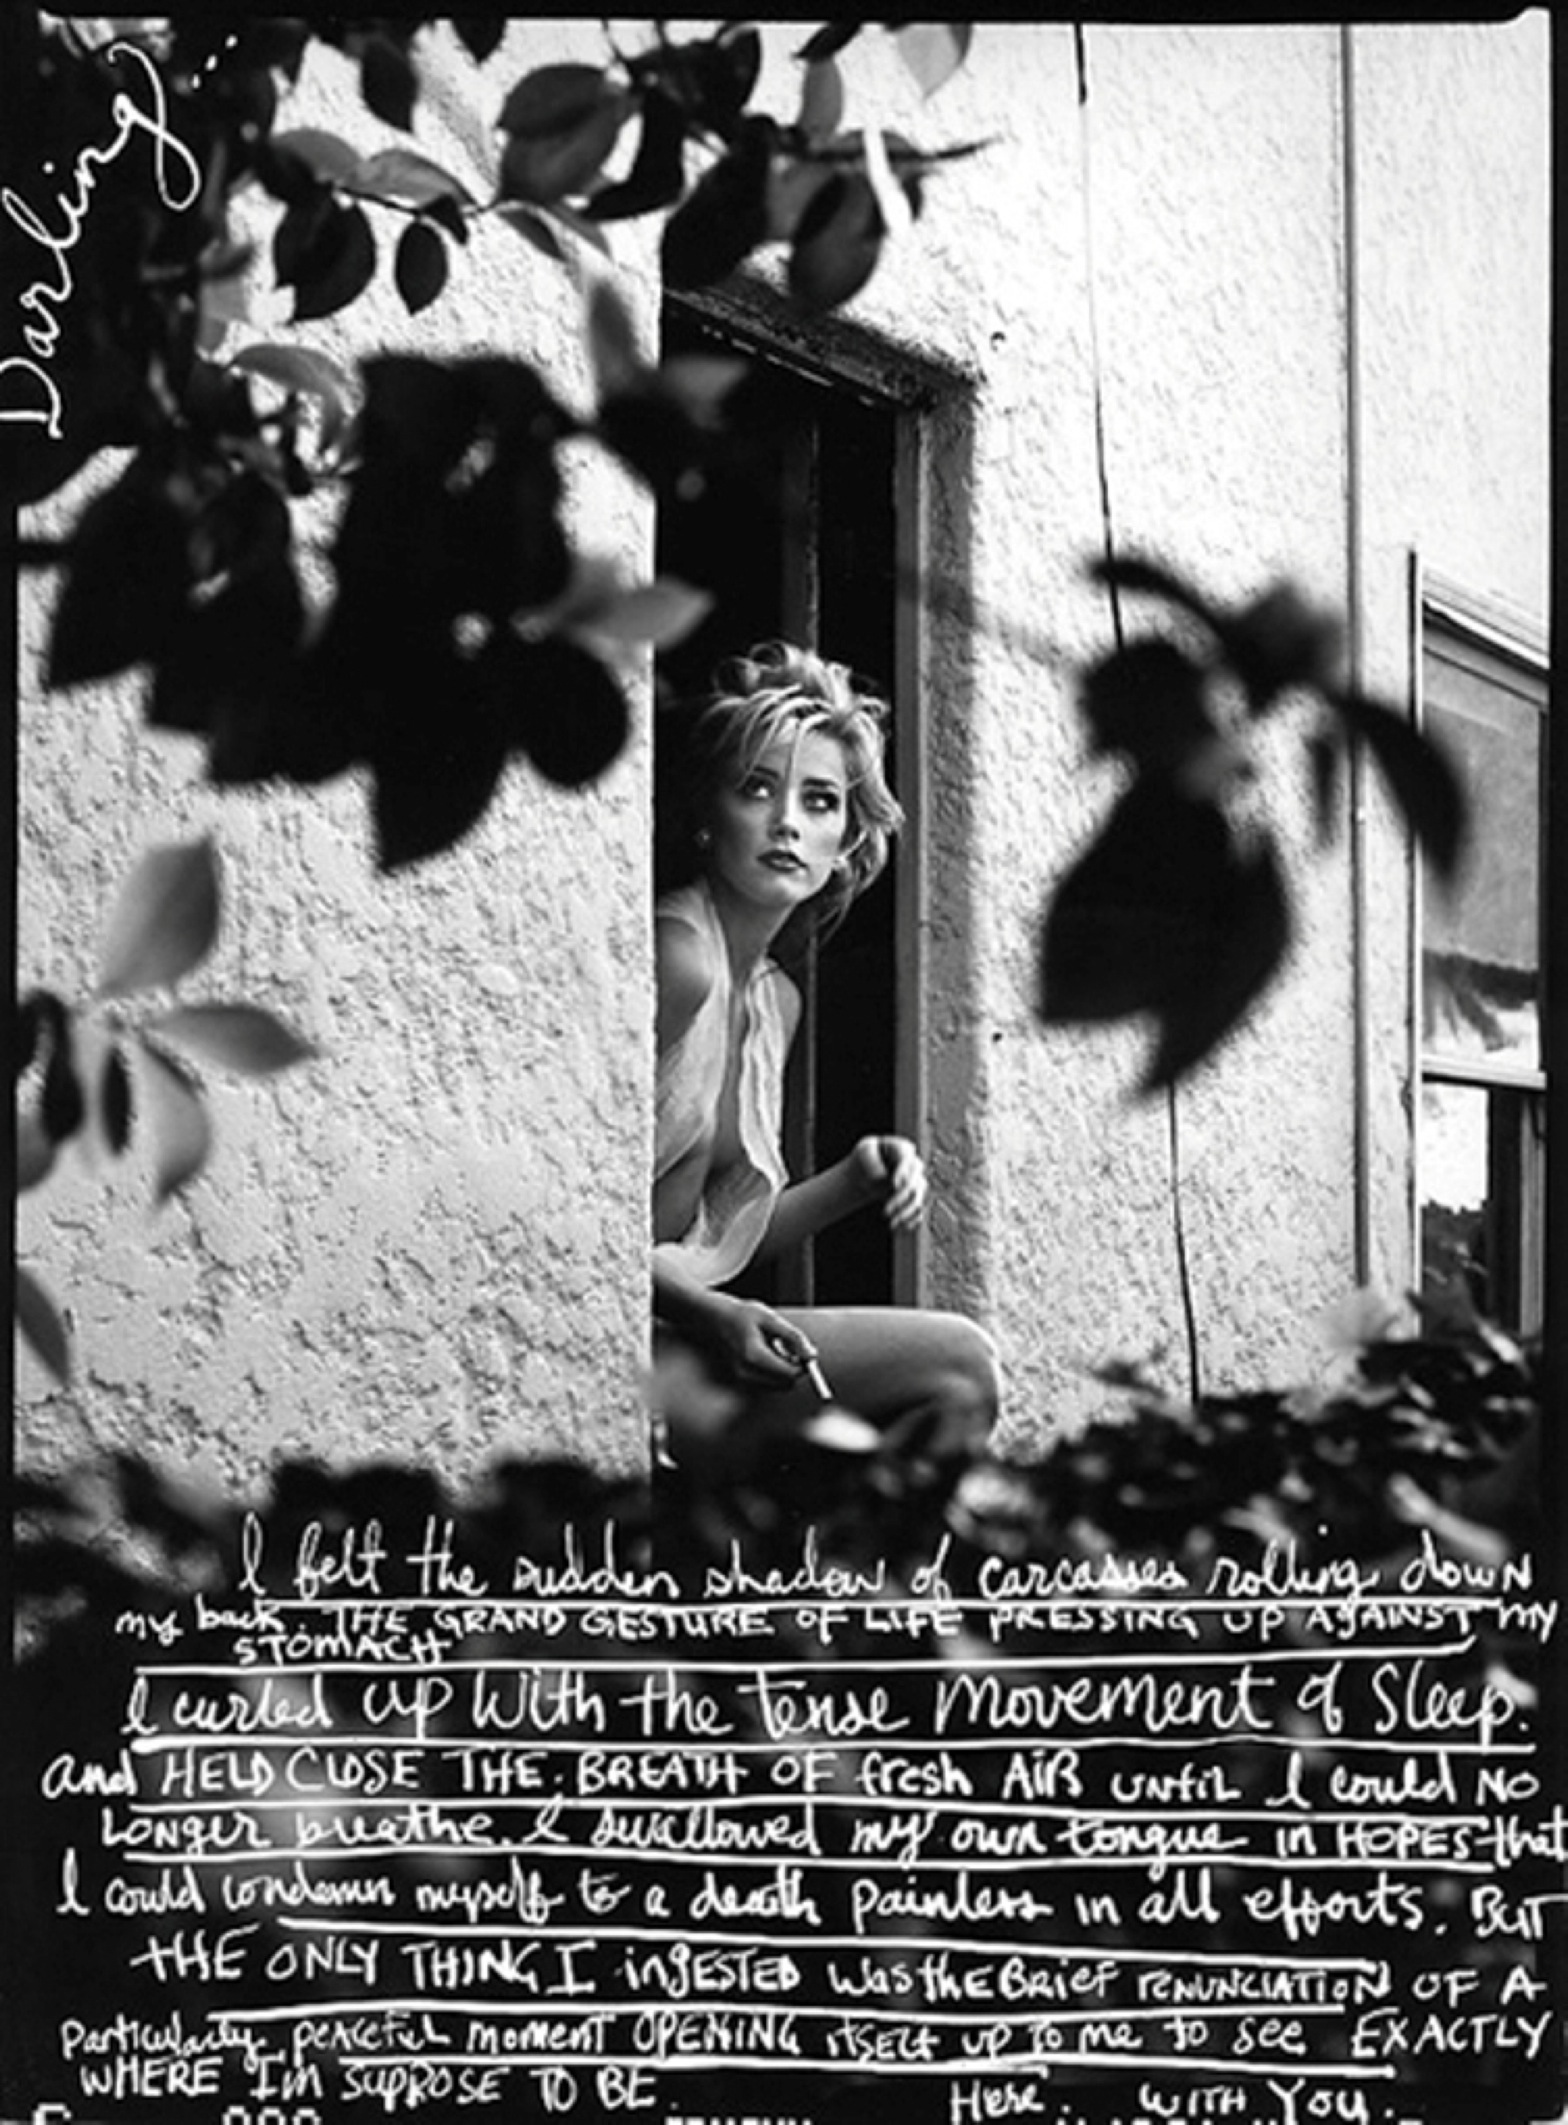 Darling...
I felt the sudden shadow of carcasses rolling down
my back. THE GRAND GESTURE OF LIFE PRESSING UP AGAINST MY
STOMACH
I curled up With the tense Movement of Sleep.
and HELD CLOSE THE. BREATH OF fresh AIR until I could NO
LONGER breathe. I swallowed my own tongue in HOPES that
I could condemn myself to a death painless in all efforts. BUT
THE ONLY THING I iNgESTED was the Brief RENUNCIATION OF A
Particularly peaceful moment OPENING itself up to me to see EXACTLY
WHERE I'M SUPPOSE TO BE. Here. WITH YOU.